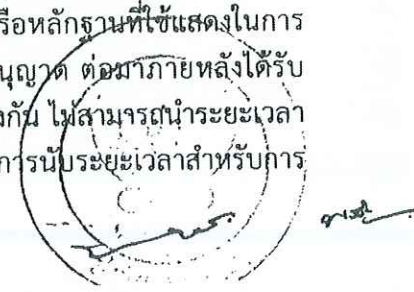 รือหลักฐานที่ใช้แสดงในการ
นุญาต ต่อมาภายหลังได้รับ
งกัน ไม่สามารถนำระยะเวลา
การนับระยะเวลาสำหรับการ